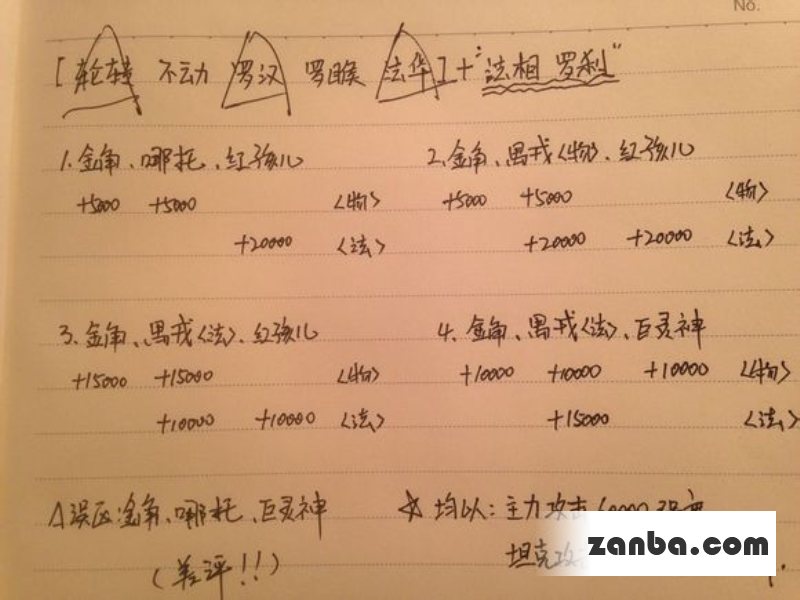 No.
[轮转 不动 罗汉 罗睺 法华]+"法相 罗刹"
1.金角、哪托、红孩儿
+5000 +5000 <物>
+20000 <法>
2.金角、禺戎<物>、红孩儿
+5000 +5000 <物>
+20000 +20000 <法>
3.金角、禺戎<法>、红孩儿
+15000 +15000 <物>
+10000 +10000 <法>
4.金角、禺戎<法>、巨灵神
+10000 +10000 +10000 <物>
+15000 <法>
△误区:金角、哪托、巨灵神
(差评!!)
☆ 均以:主力攻击
坦克攻
zanba.com